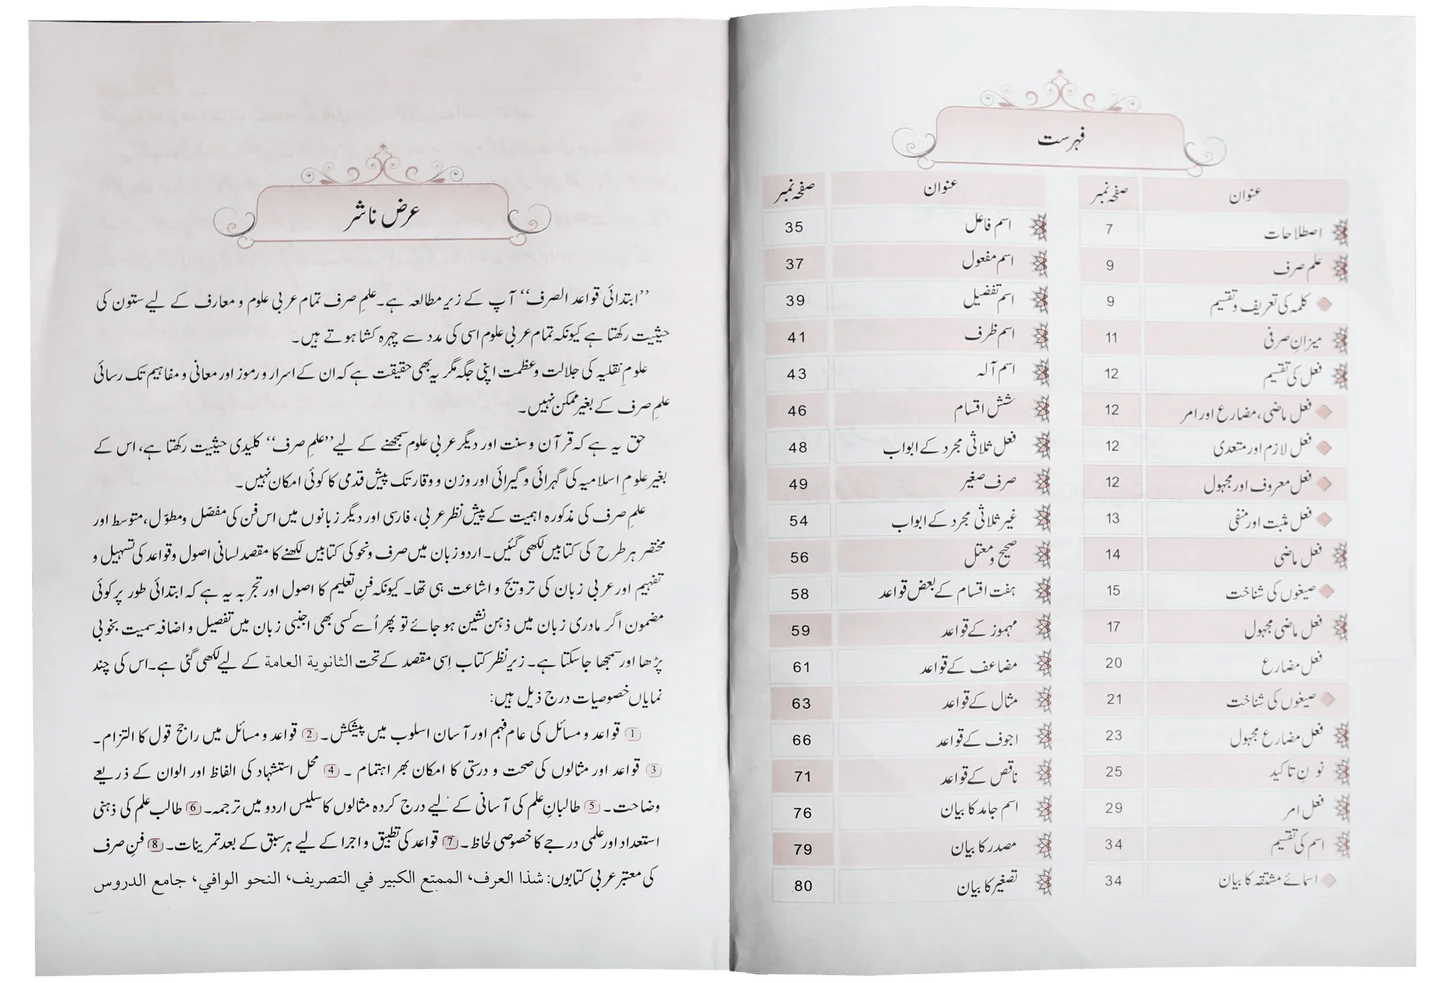 فہرست
عنوان صفحہ نمبر
اصطلاحات 7
علم صرف 9
کلمہ کی تعریف و تقسیم 9
میزانِ صرفی 11
فعل کی تقسیم 12
فعل ماضی، مضارع اور امر 12
فعل لازم اور متعدی 12
فعل معروف اور مجہول 12
فعل مثبت اور منفی 13
فعل ماضی 14
صیغوں کی شناخت 15
فعل ماضی مجہول 17
فعل مضارع 20
صیغوں کی شناخت 21
فعل مضارع مجہول 23
نونِ تاکید 25
فعل امر 29
اسم کی تقسیم 34
اسمائے مشتقہ کا بیان 34
عنوان صفحہ نمبر
اسم فاعل 35
اسم مفعول 37
اسم تفضیل 39
اسم ظرف 41
اسم آلہ 43
شش اقسام 46
فعل ثلاثی مجرد کے ابواب 48
صرف صغیر 49
غیر ثلاثی مجرد کے ابواب 54
صحیح و معتل 56
ہفت اقسام کے بعض قواعد 58
مہموز کے قواعد 59
مضاعف کے قواعد 61
مثال کے قواعد 63
اجوف کے قواعد 66
ناقص کے قواعد 71
اسم جامد کا بیان 76
مصدر کا بیان 79
تصغیر کا بیان 80
عرض ناشر
’’ابتدائی قواعد الصرف‘‘ آپ کے زیر مطالعہ ہے۔ علمِ صرف تمام عربی علوم و معارف کے لیے ستون کی
حیثیت رکھتا ہے کیونکہ تمام عربی علوم اسی کی مدد سے چہرہ کشا ہوتے ہیں۔
علومِ نقلیہ کی جلالت و عظمت اپنی جگہ مگر یہ بھی حقیقت ہے کہ ان کے اسرار و رموز اور معانی و مفاہیم تک رسائی
علمِ صرف کے بغیر ممکن نہیں۔
حق یہ ہے کہ قرآن و سنت اور دیگر عربی علوم سمجھنے کے لیے ’’علمِ صرف‘‘ کلیدی حیثیت رکھتا ہے، اس کے
بغیر علومِ اسلامیہ کی گہرائی و گیرائی اور وزن و وقار تک پیش قدمی کا کوئی امکان نہیں۔
علمِ صرف کی مذکورہ اہمیت کے پیش نظر عربی، فارسی اور دیگر زبانوں میں اس فن کی مفصل و مطوّل، متوسط اور
مختصر ہر طرح کی کتابیں لکھی گئیں۔ اردو زبان میں صرف و نحو کی کتابیں لکھنے کا مقصد لسانی اصول و قواعد کی تسہیل و
تفہیم اور عربی زبان کی ترویج و اشاعت ہی تھا۔ کیونکہ فنِ تعلیم کا اصول اور تجربہ یہ ہے کہ ابتدائی طور پر کوئی
مضمون اگر مادری زبان میں ذہن نشین ہو جائے تو پھر اُسے کسی بھی اجنبی زبان میں تفصیل و اضافہ سمیت بخوبی
پڑھا اور سمجھا جاسکتا ہے۔ زیر نظر کتاب اِسی مقصد کے تحت الثانوية العامة کے لیے لکھی گئی ہے۔ اس کی چند
نمایاں خصوصیات درج ذیل ہیں:
1 قواعد و مسائل کی عام فہم اور آسان اسلوب میں پیشکش۔ 2 قواعد و مسائل میں راجح قول کا التزام۔
3 قواعد اور مثالوں کی صحت و درستی کا امکان بھر اہتمام۔ 4 محل استشہاد کی الفاظ اور الوان کے ذریعے
وضاحت۔ 5 طالبانِ علم کی آسانی کے لیے درج کردہ مثالوں کا سلیس اردو میں ترجمہ۔ 6 طالب علم کی ذہنی
استعداد اور علمی درجے کا خصوصی لحاظ۔ 7 قواعد کی تطبیق و اجرا کے لیے ہر سبق کے بعد تمرینات۔ 8 فنِ صرف
کی معتبر عربی کتابوں: شذا العرف، الممتع الكبير في التصريف، النحو الوافي، جامع الدروس